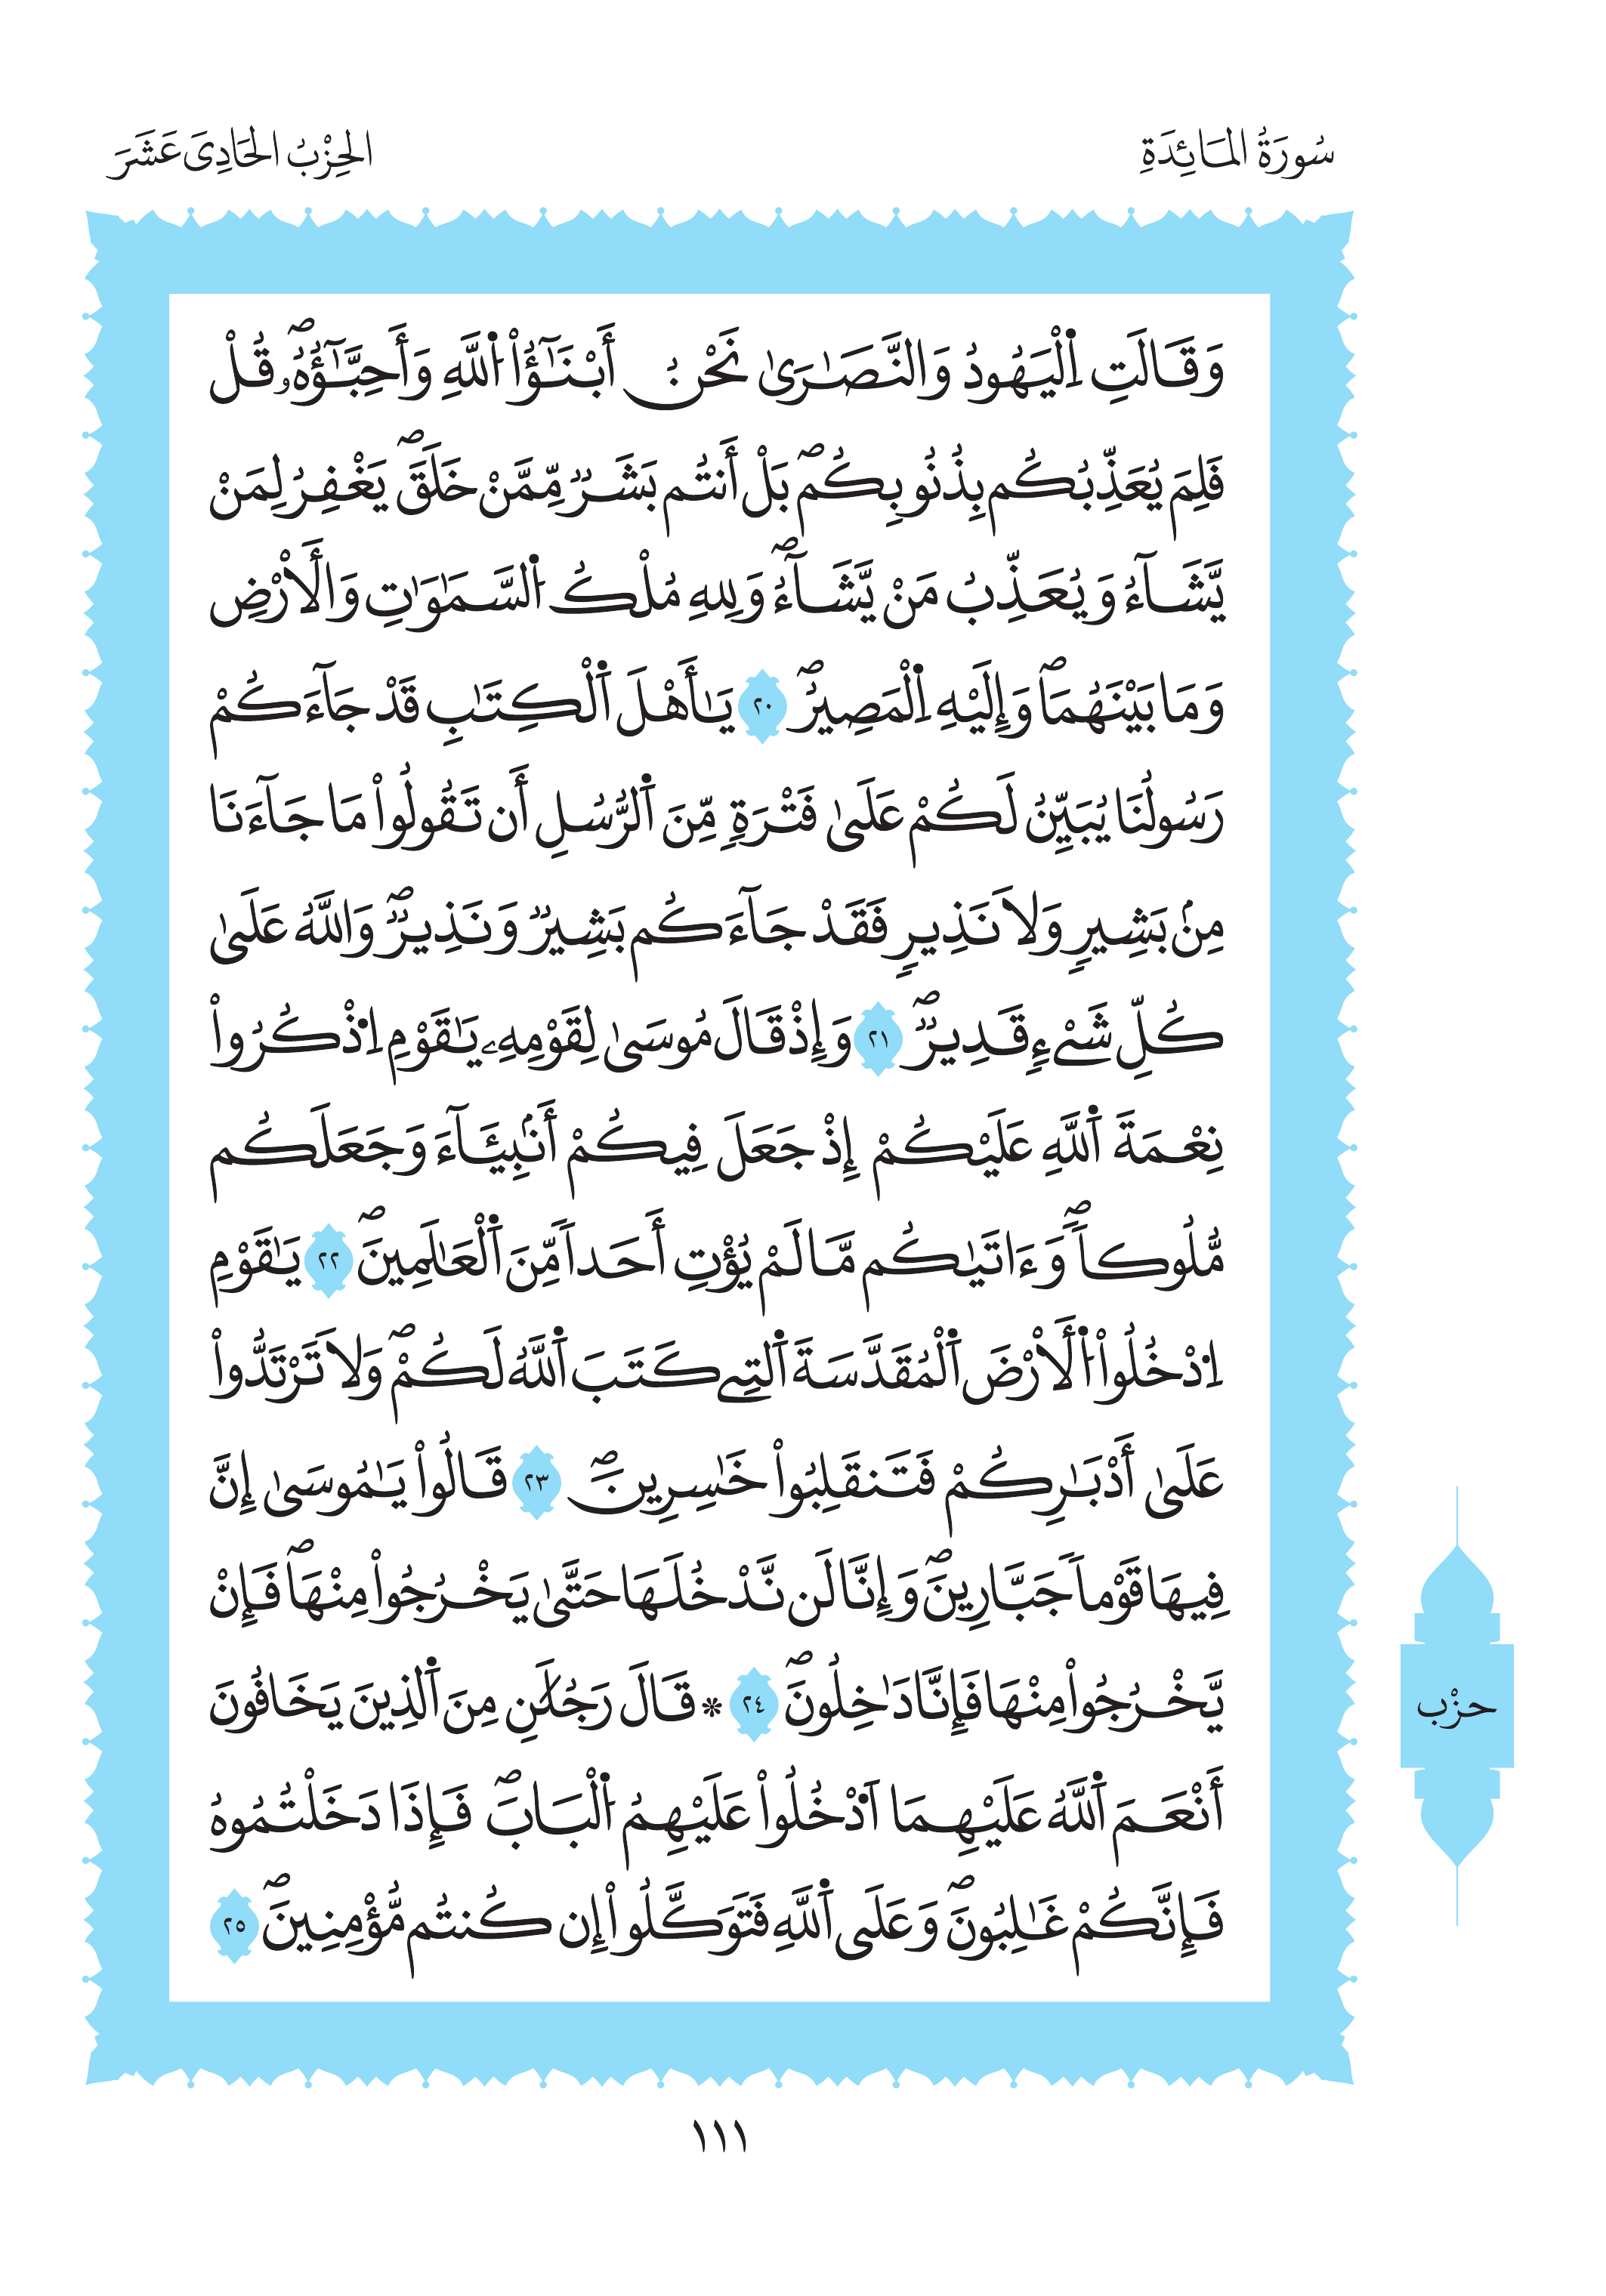 سُورَةُ المَائِدَةِ
الحِزْبُ الحَادِىَ عَشَرَ
وَقَالَتِ اِ۬لْيَهُودُ وَالنَّصَٰرَىٰ نَحْنُ أَبْنَٰٓؤُا۟ اُ۬للَّهِ وَأَحِبَّٰٓؤُهُۥۖ قُلْ
فَلِمَ يُعَذِّبُكُم بِذُنُوبِكُمۖ بَلْ أَنتُم بَشَرٞ مِّمَّنْ خَلَقَۖ يَغْفِرُ لِمَنْ
يَّشَآءُ وَيُعَذِّبُ مَنْ يَّشَآءُۖ وَلِلهِ مُلْكُ اُ۬لسَّمَٰوَٰتِ وَالَارْضِ
وَمَا بَيْنَهُمَاۖ وَإِلَيْهِ اِ۬لْمَصِيرُۖ ٢٠ يَٰأَهْلَ اَ۬لْكِتَٰبِ قَدْ جَآءَكُمْ
رَسُولُنَا يُبَيِّنُ لَكُمْ عَلَىٰ فَتْرَةٖ مِّنَ اَ۬لرُّسُلِ أَن تَقُولُوا۟ مَا جَآءَنَا
مِنۢ بَشِيرٖ وَلَا نَذِيرٖ فَقَدْ جَآءَكُم بَشِيرٞ وَنَذِيرٞۖ وَاللَّهُ عَلَىٰ
كُلِّ شَيْءٖ قَدِيرٞۖ ٢١ وَإِذْ قَالَ مُوسَىٰ لِقَوْمِهِۦ يَٰقَوْمِ اِ۟ذْكُرُوا۟
نِعْمَةَ اَ۬للَّهِ عَلَيْكُمْ إِذْ جَعَلَ فِيكُمْ أَنۢبِيَٓاءَ وَجَعَلَكُم
مُّلُوكاٗۖ وَءَاتَيٰكُم مَّا لَمْ يُؤْتِ أَحَداٗ مِّنَ اَ۬لْعَٰلَمِينَۖ ٢٢ يَٰقَوْمِ
اِ۟دْخُلُوا۟ اُ۬لَارْضَ اَ۬لْمُقَدَّسَةَ اَ۬لتِے كَتَبَ اَ۬للَّهُ لَكُمْۖ وَلَا تَرْتَدُّوا۟
عَلَىٰ أَدْبَٰرِكُمْ فَتَنقَلِبُوا۟ خَٰسِرِينَۖ ٢٣ قَالُوا۟ يَٰمُوسَىٰ إِنَّ
فِيهَا قَوْماٗ جَبَّارِينَۖ وَإِنَّا لَن نَّدْخُلَهَا حَتَّىٰ يَخْرُجُوا۟ مِنْهَاۖ فَإِنْ
يَّخْرُجُوا۟ مِنْهَا فَإِنَّا دَٰخِلُونَۖ ٢٤ * قَالَ رَجُلَٰنِ مِنَ اَ۬لذِينَ يَخَافُونَ
أَنْعَمَ اَ۬للَّهُ عَلَيْهِمَا اَ۟دْخُلُوا۟ عَلَيْهِمُ اُ۬لْبَابَۖ فَإِذَا دَخَلْتُمُوهُ
فَإِنَّكُمْ غَٰلِبُونَۖ وَعَلَى اَ۬للَّهِ فَتَوَكَّلُوا۟ إِن كُنتُم مُّؤْمِنِينَۖ ٢٥
حزْب
١١١